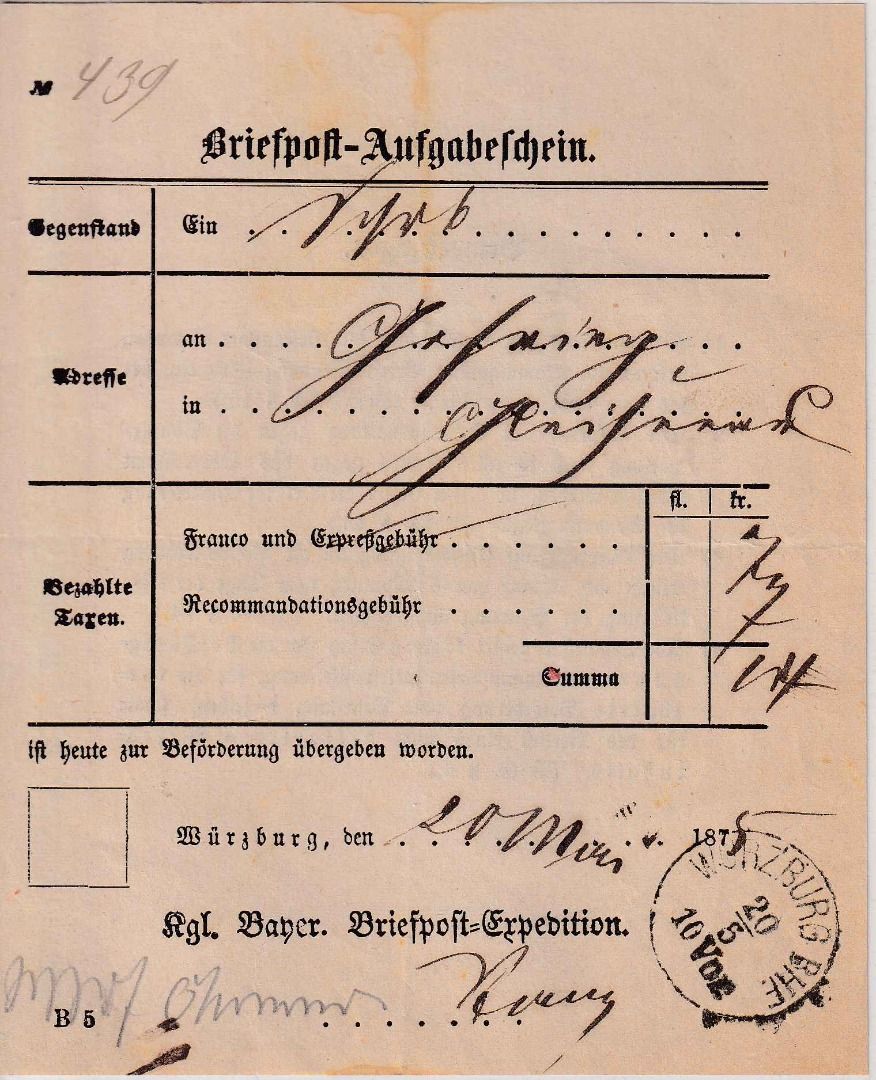 № 439
Briefpost-Aufgabeschein.
Gegenstand
Ein Schrb
Adresse
an Gehring
in
fl. kr.
Bezahlte Taxen.
Franco und Expreßgebühr 7
Recommandationsgebühr 7
Summa 14
ist heute zur Beförderung übergeben worden.
Würzburg, den 20 Mai 1875
Kgl. Bayer. Briefpost-Expedition.
WÜRZBURG BHF
20/5
10 Vor
B 5